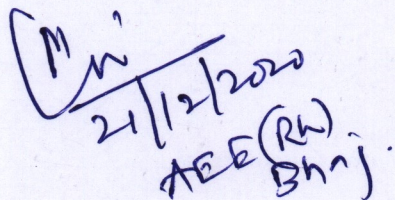 21/12/2020
AEE (RW)
Bhnj.